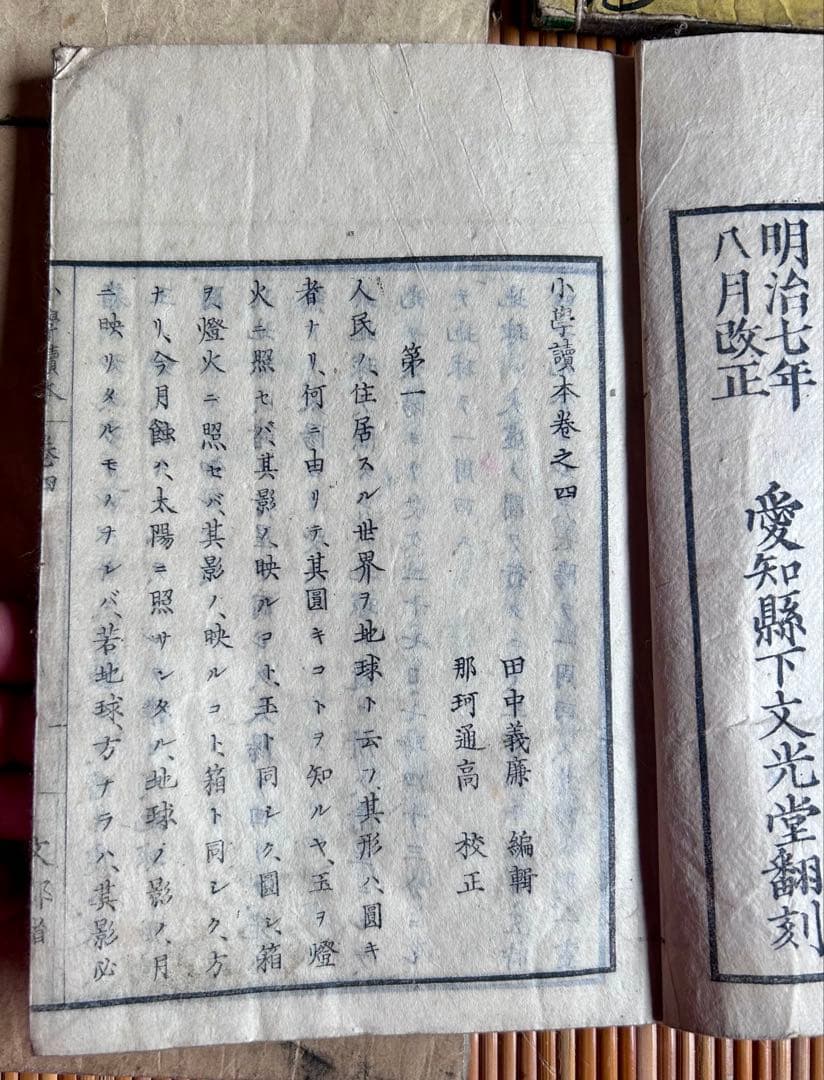 明治七年
八月改正
愛知縣下文光堂翻刻
小學讀本卷之四
田中義廉 編輯
那珂通高 校正
第一
人民ノ、住居スル世界ヲ、地球ト云フ、其形ハ、圓キ
者ナリ、何ニ由リテ、其圓キコトヲ知ルヤ、玉ヲ燈
火ニ照セバ、其影ノ、映ルコト、玉ト同シク、圓シ、箱
ヲ、燈火ニ照セバ、其影ノ、映ルコト、箱ト同シク、方
ナリ、今月蝕ハ、太陽ニ照サレタル、地球ノ影ノ、月
ニ映リタルモノナレバ、若地球、方ナラハ、其影必
小學讀本 卷四
一
文部省